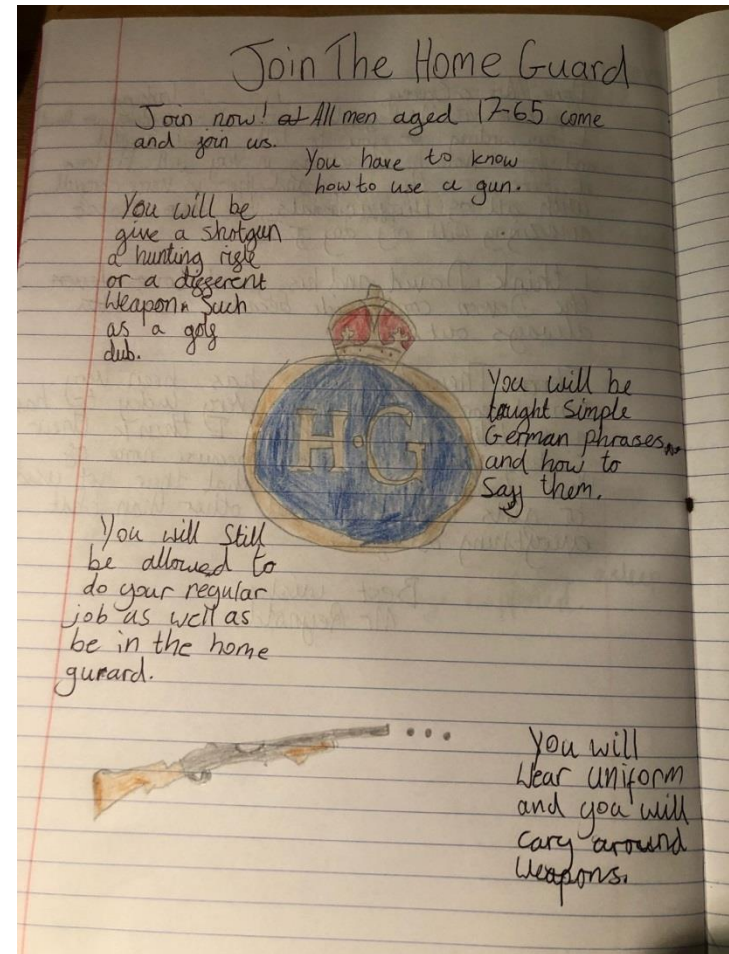 Join The Home Guard
Join now! at All men aged 17-65 come
and join us.
You have to know
how to use a gun.
You will be
give a shotgun
a hunting rigle
or a diggerent
Weapon. Such
as a golg
club.
H G
You will be
taught simple
German phrases
and how to
Say them.
You will still
be allowed to
do your regular
job as well as
be in the home
gurard.
You will
Wear uniform
and you will
cary around
Weapons.